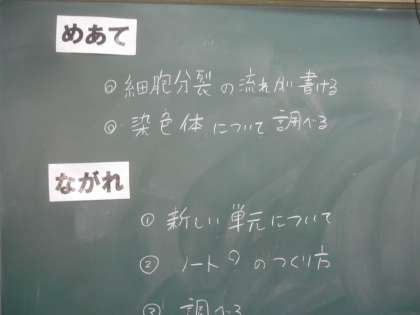 めあて
◎ 細胞分裂の流れが書ける
◎ 染色体について調べる
ながれ
① 新しい単元について
② ノートのつくり方
③ 調べる